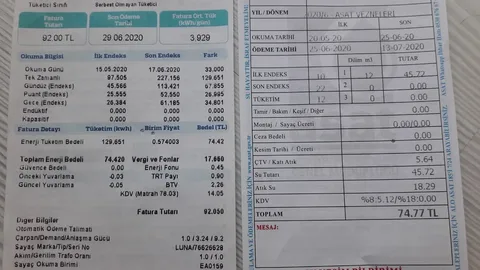 Tüketici Sınıfı
Serbest Olmayan Tüketici
Fatura Tutarı
Son Ödeme Tarihi
Fatura Ort. Tük (kWh/gün)
92.00 TL
29.06.2020
3,929
Okuma Bilgisi İlk Endeks Son Endeks Fark
Okuma Günü 15.05.2020 17.06.2020 33,000
Tek Zamanlı 97.505 227,156 129,651
Gündüz (Endeks) 45,566 113,421 67,855
Puant (Endeks) 25,555 52,550 26,995
Gece (Endeks) 26,384 61,185 34,801
Endüktif 0,000 0,000 0,000
Kapasitif 0,000 0,000 0,000
Fatura Detayı Tüketim (kwh) Birim Fiyat Bedel (TL)
Enerji Tüketim Bedeli 129,651 0,574003 74,42
Toplam Enerji Bedeli 74,420 Vergi ve Fonlar
Güvence Bedeli 0.00 Enerji Fonu 0.45
Önceki Yuvarlama -0.03 TRT Payı 0.90
Güncel Yuvarlama -0.05 BTV 2.26
KDV (Matrah 78.03) 14.05
Fatura Tutarı
Diğer Bilgiler
Otomatik Ödeme Talimatı
Çarpan/Demand/Anlaşma Gücü 1.0 / 3.24 / 9.2
Sayaç Marka/Tip/Seri No LUNA/76626628
Akım/Gerilim Trafo Oranı 1.0 / 1.0
Sayaç Okuma Birimi EA0159
YIL / DÖNEM 2020/6 ASAT VEZNELERİ
İLK SON
OKUMA TARİHİ 20-05-20 25-06-20
ÖDEME TARİHİ 25-06-2020 13-07-2020
Dilim m3 TUTAR
İLK ENDEKS 10 1 12 45.72
SON ENDEKS 22 2 0 0.00
TÜKETİM 12 3 0 0.00
Tamir / Bakım / Kaşif / Diğer 0.00
Montaj / Sayaç Ücreti 0.00/0.00
Ceza Bedeli 0.00
Kesim Tarihi / Ücreti 0.00
ÇTV / Katı Atık 5.64
Su Tutarı 45.72
Atık Su 18.29
KDV %8:5.12/%18:0.00
TOPLAM 74.77 TL
MESAJ: